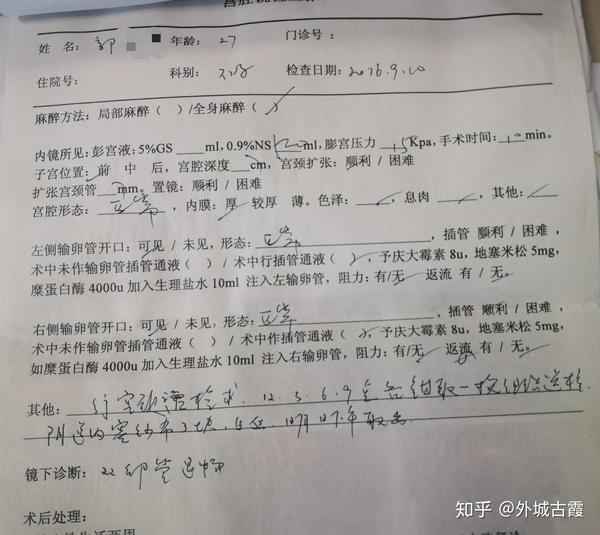 姓 名：郭 年龄：27 门诊号：
住院号： 科别： 检查日期：2016.9.10
麻醉方法：局部麻醉（ ）/全身麻醉（✓）
内镜所见：彭宫液：5%GS ____ml，0.9%NS ml，膨宫压力 15Kpa，手术时间：10min。
子宫位置：前 中 后，宫腔深度__cm，宫颈扩张：顺利 / 困难
扩张宫颈管____mm。置镜：顺利 / 困难
宫腔形态：正常，内膜：厚 较厚 薄。色泽： ，息肉 ，其他：
左侧输卵管开口：可见 / 未见，形态：正常，插管 顺利 / 困难，
术中未作输卵管插管通液（ ）/ 术中行插管通液（✓），予庆大霉素 8u，地塞米松 5mg，
糜蛋白酶 4000u 加入生理盐水 10ml 注入左输卵管，阻力：有/无 返流 有 / 无。
右侧输卵管开口：可见 / 未见，形态：正常，插管 顺利 / 困难，
术中未作输卵管插管通液（ ）/ 术中作插管通液（✓），予庆大霉素 8u，地塞米松 5mg，
如糜蛋白酶 4000u 加入生理盐水 10ml 注入右输卵管，阻力：有/无 返流 有 / 无。
其他：行宫颈活检术．12．3．6．9点各钳取一枚组织送检．
阴道内塞纱布 明日下午取出
镜下诊断：双卵管通畅
术后处理：
知乎 @外城古霞